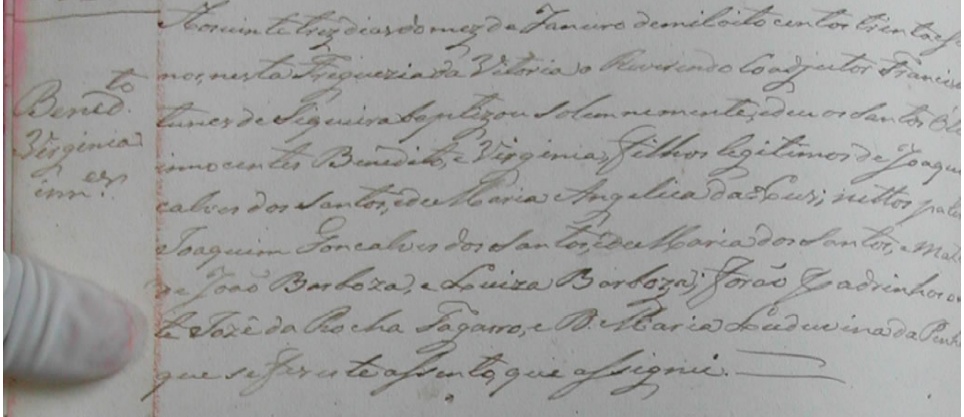 Aos vinte trez dias do mez de Janeiro de mil oito centos trinta
nos, nesta Freguezia da Vitoria o Reverendo Coadjutor Francis
Bened.to
tunes de Siqueira baptizou solemnemente, e deu os Santos Ole
Virginia
innocentes Benedito, e Virginia, filhos legitimos de Joaqu
inn.es
calves dos Santos, e de Maria Angelica da Luz; nettos pate
Joaquim Goncalves dos Santos, e de Maria dos Santos, e Mate
de João Barboza, e Luiza Barboza; forão Padrinhos o
te Jozé da Rocha Tagarro, e D. Maria Ludovina da Penh
que se fez este assento, que assignei.